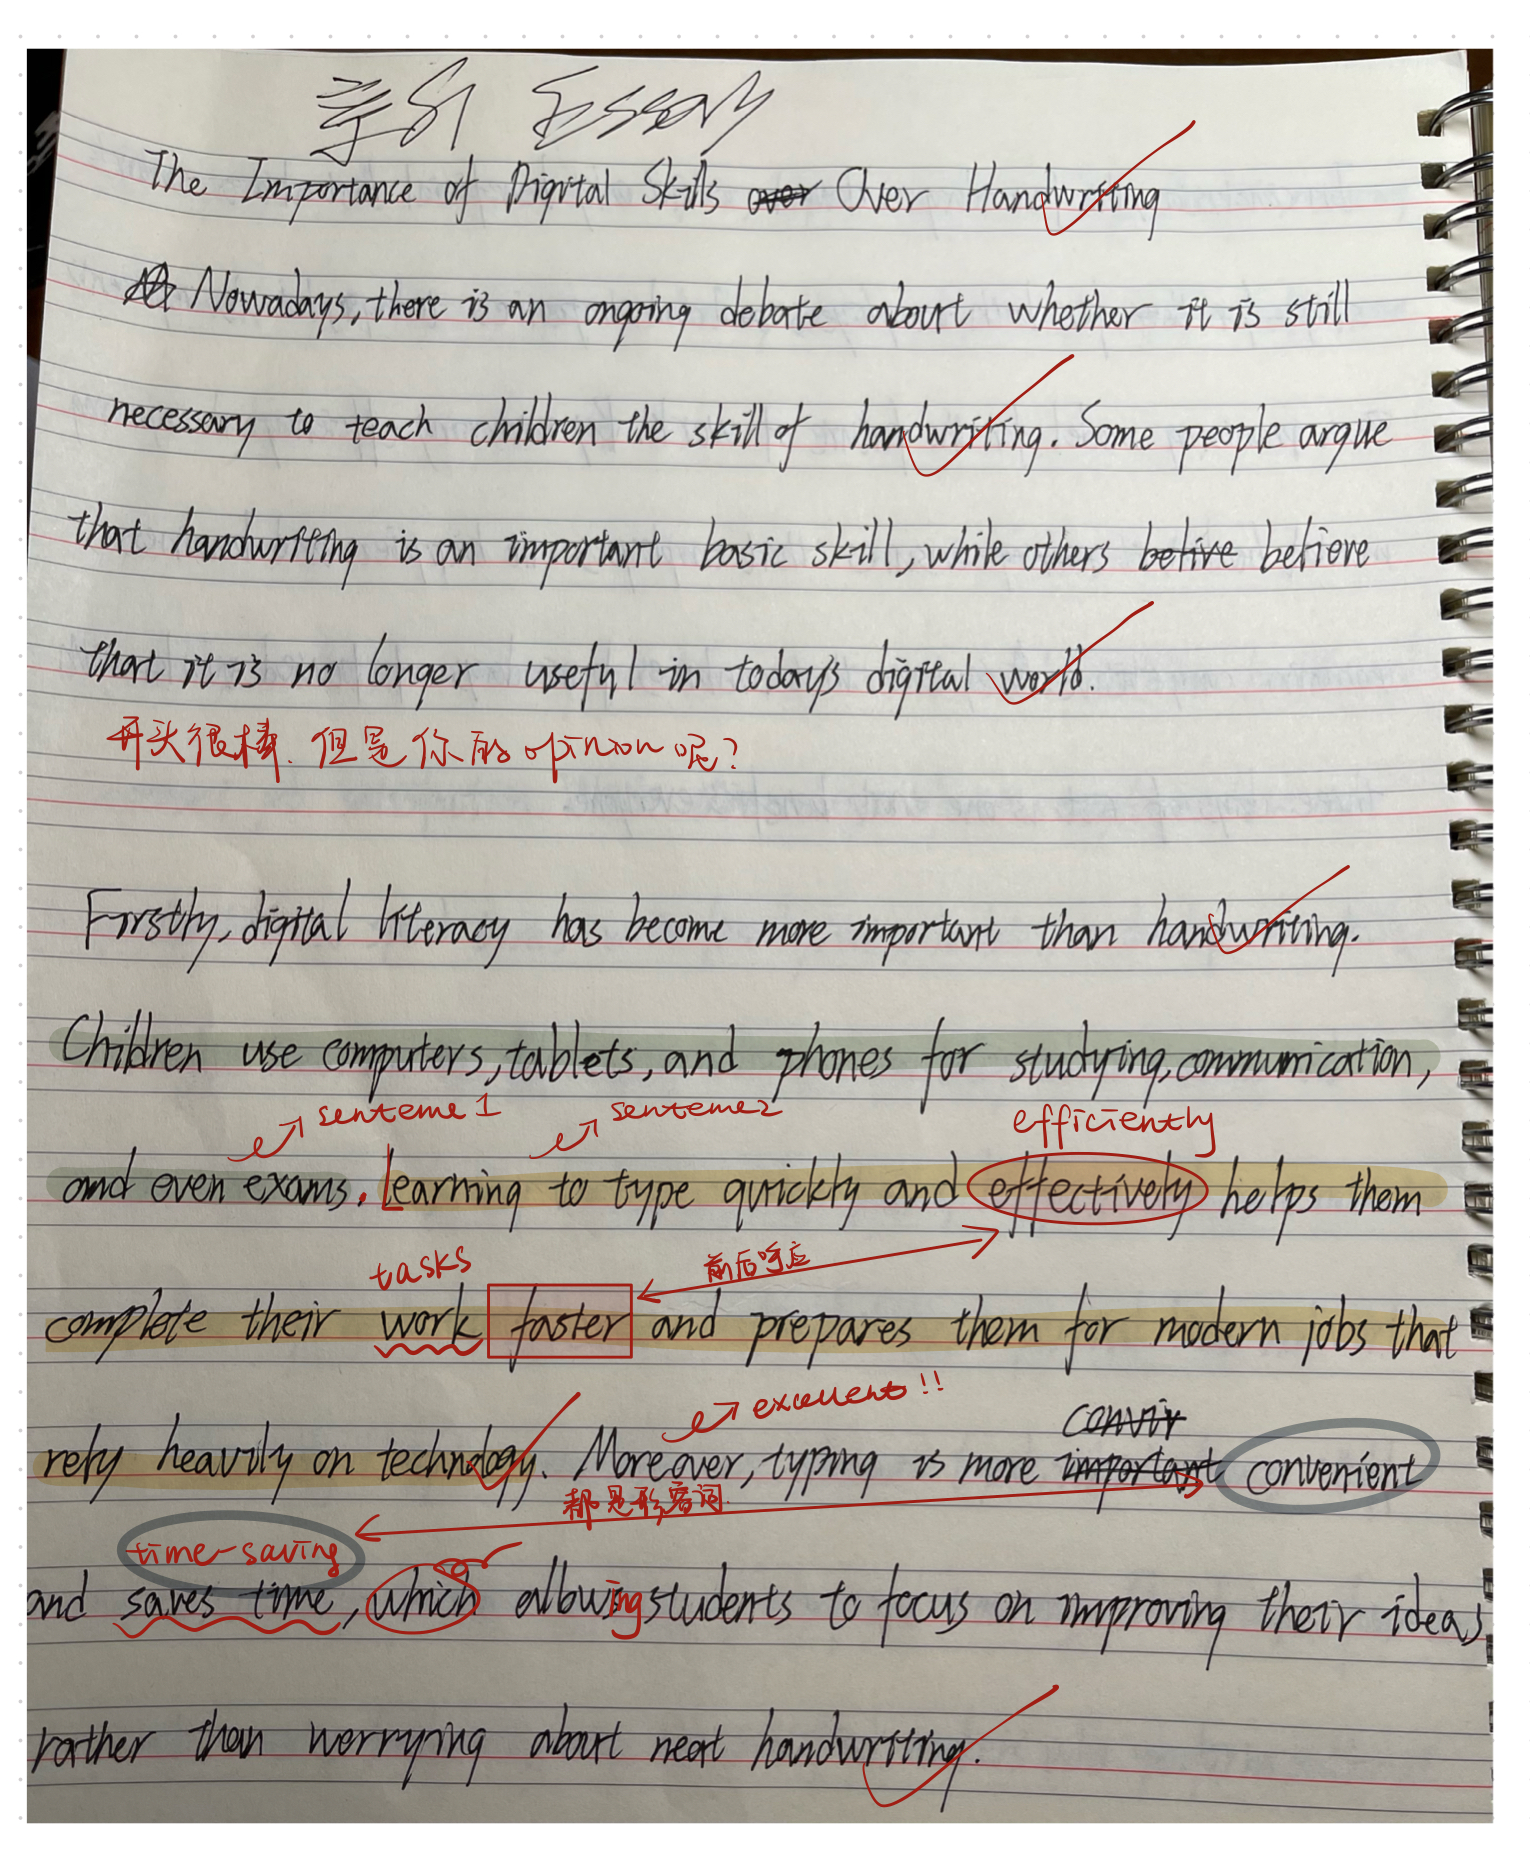 Essay
The Importance of Digital Skills over Over Handwriting
Nowadays, there is an ongoing debate about whether it is still
necessary to teach children the skill of handwriting. Some people argue
that handwriting is an important basic skill, while others belive believe
that it is no longer useful in today's digital world.
开头很棒. 但是你的opinion呢?
Firstly, digital literacy has become more important than handwriting.
Children use computers, tablets, and phones for studying, communication,
sentence 1 sentence 2 efficiently
and even exams. Learning to type quickly and effectively helps them
tasks 前后呼应
complete their work faster and prepares them for modern jobs that
excellent!! convir
rely heavily on technology. Moreover, typing is more important convenient
都是形容词.
time-saving
and saves time, which allowing students to focus on improving their ideas
rather than worrying about neat handwriting.